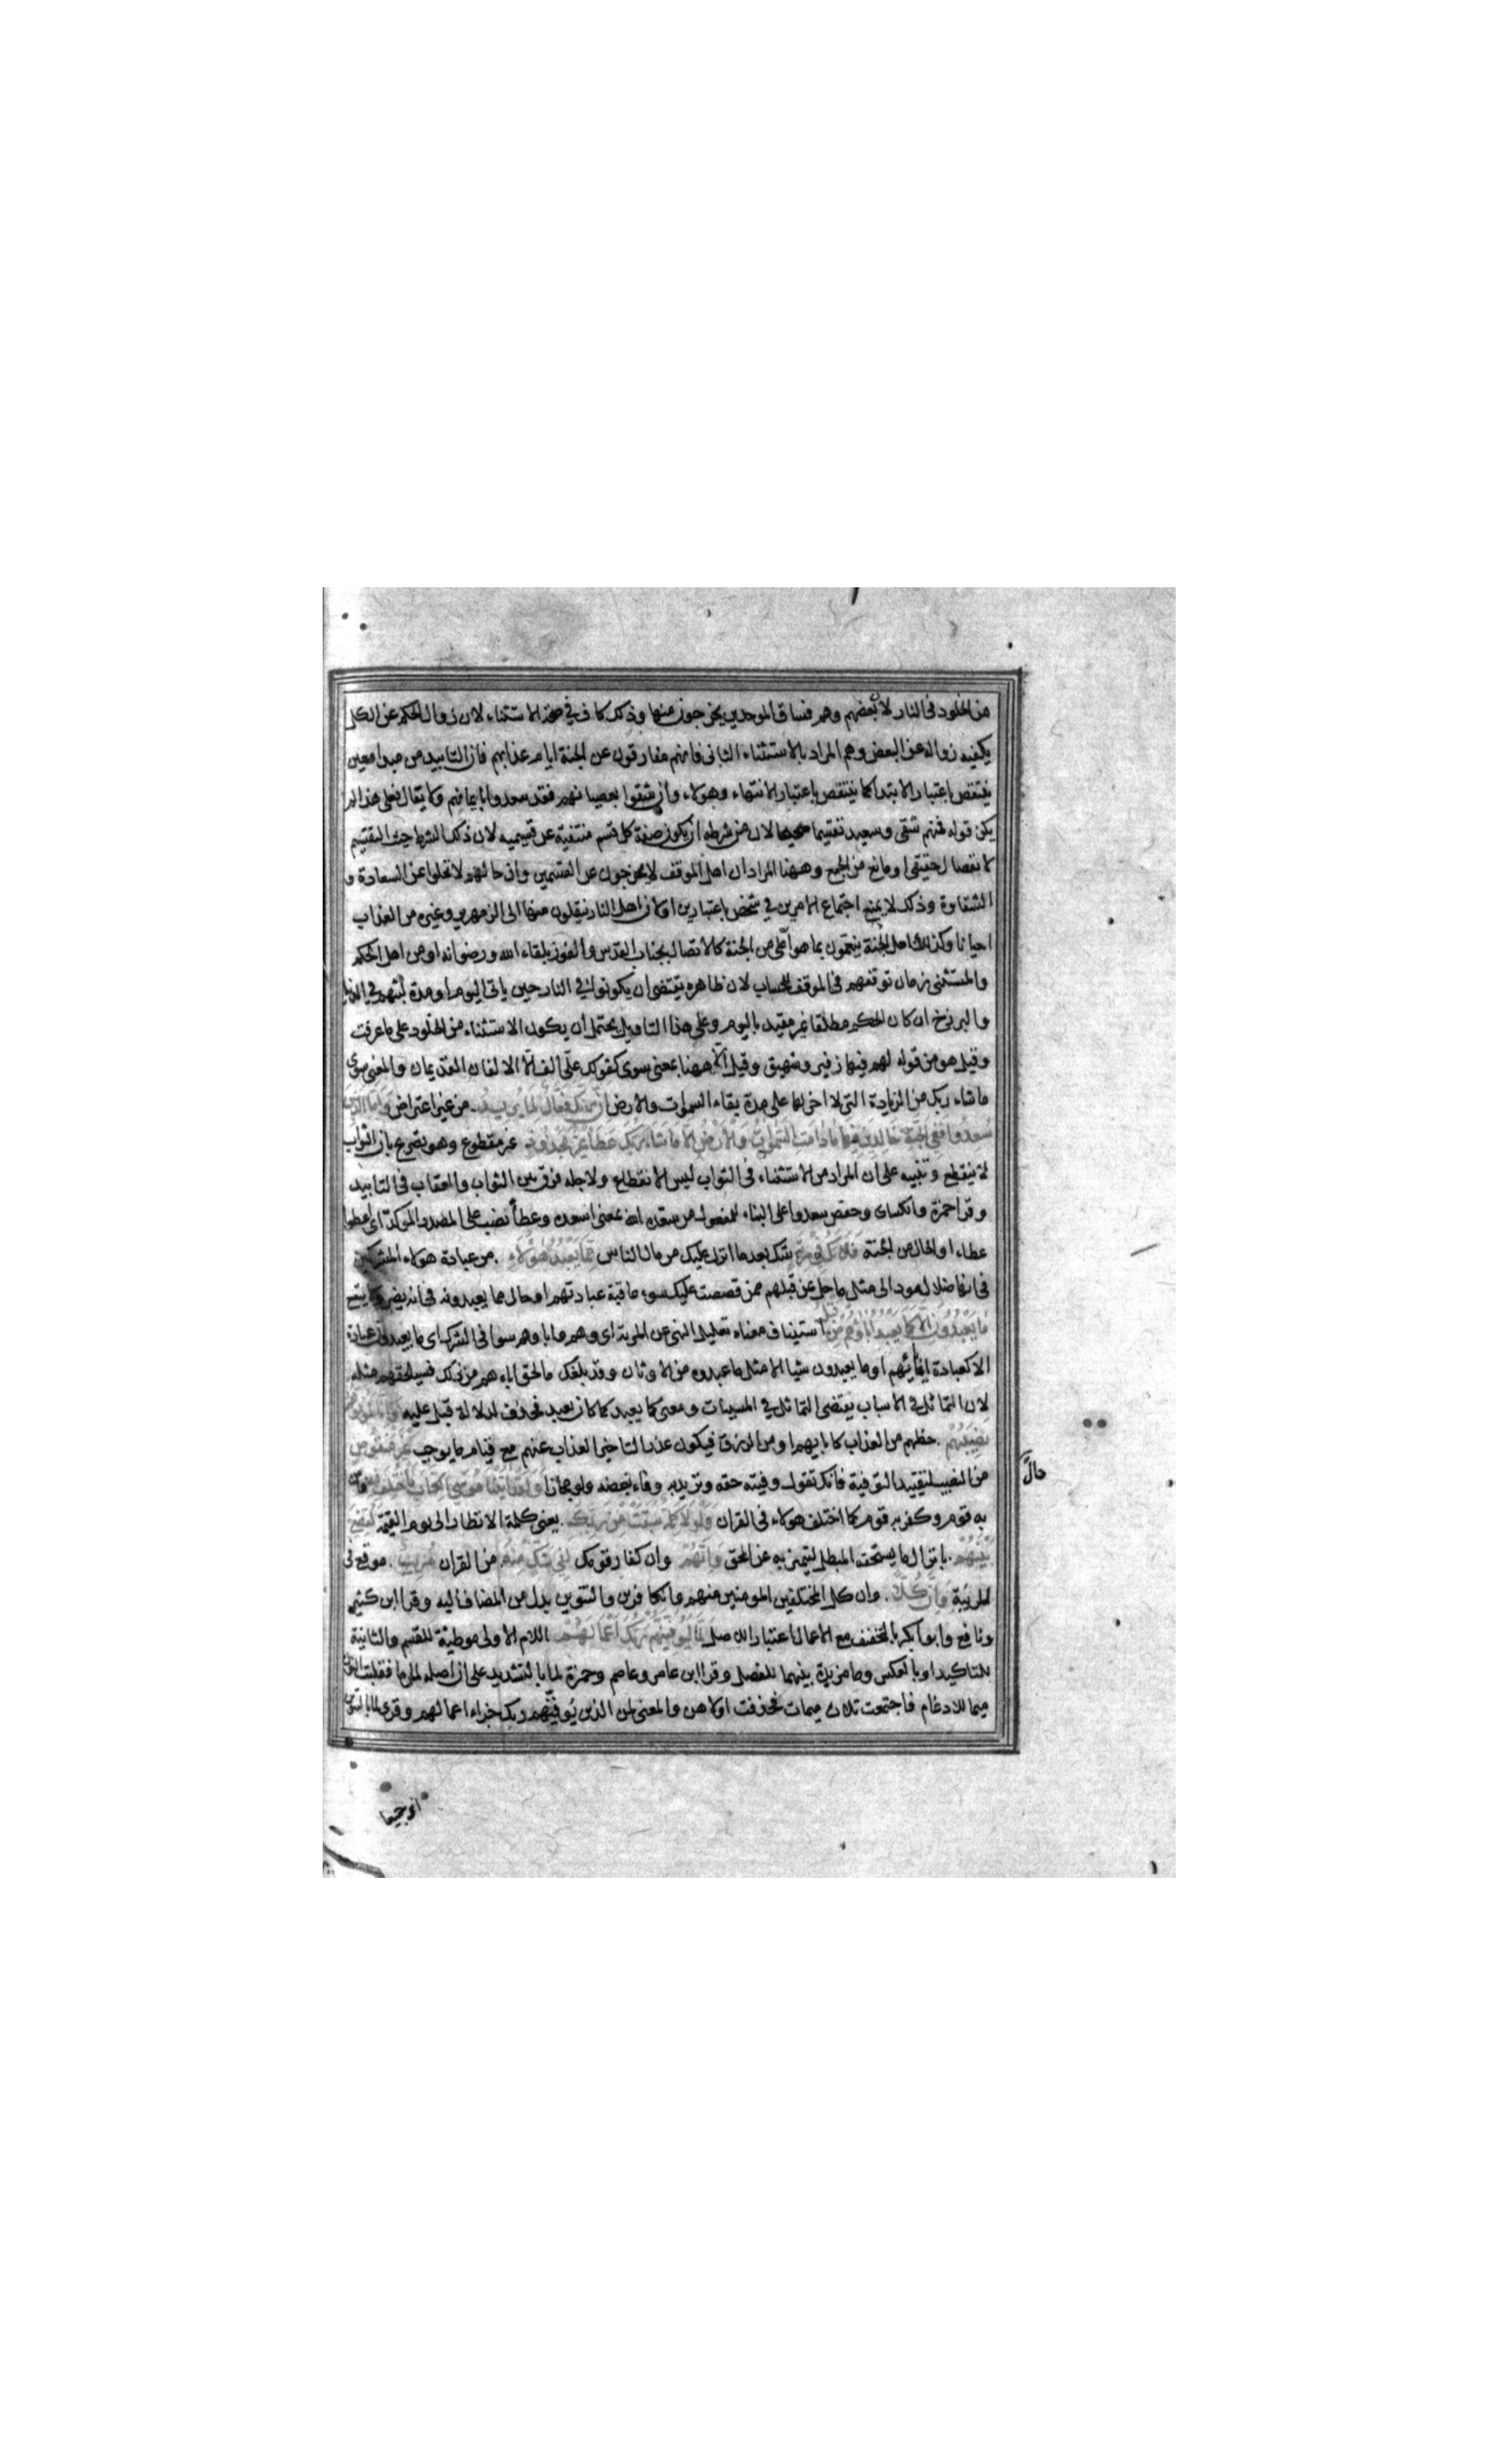 من الخلود فى النار لان بعضهم وهم فساق الموحدين يخرجون منها وذلك كاف فى صحة الاستثناء لان زوال الحكم عن الكل
يكفيه زواله عن البعض وهم المراد بالاستثناء الثانى فانهم مفارقون عن الجنة ايام عذابهم فان التابيد من مبدا معين
ينتقض باعتبار الابتدا كما ينتقض باعتبار الانتهاء وهولاء وان شقوا بعصيانهم فقد سعدوا بايمانهم ولا يقال فعلى هذا لم
يكن قوله فمنهم شقى وسعيد تقسيما صحيحا لان من شرطه ان يكون صفة كل قسم منتفية عن قسيمه لان ذلك الشرط حيث التقسيم
لانفصال حقيقى او مانع من الجمع وههنا المراد ان اهل الموقف لا يخرجون عن القسمين وان حالهم لا تخلوا عن السعادة و
الشقاوة وذلك لا يمنع اجتماع الامرين فى شخص باعتبارين او لان اهل النار ينقلون منها الى الزمهرير وغيره من العذاب
احيانا وكذلك اهل الجنة ينعمون بما هو اعلى من الجنة كالاتصال بجناب القدس والفوز بلقاء الله ورضوانه او من اصل الحكم
والمستثنى زمان توقفهم فى الموقف للحساب لان ظاهره يقتضى ان يكونوا فى النار حين ياتى اليوم او مدة لبثهم فى الدنيا
والبرزخ ان كان الحكم مطلقا غير مقيد باليوم وعلى هذا التاويل يحتمل ان يكون الاستثناء من الخلود على ما عرفت
وقيل هو من قوله لهم فيها زفير وشهيق وقيل الا ههنا بمعنى سوى كقولك على الف الا الالفان القديمان والمعنى سوى
ما شاء ربك من الزيادة التى لا اخر لها على مدة بقاء السموات والارض ان ربك فعال لما يريد من غير اعتراض واما الذين
سعدوا ففى الجنة خالدين فيها ما دامت السموات والارض الا ما شاء ربك عطاء غير مجذوذ غير مقطوع وهو تصريح بان الثواب
لا ينقطع وتنبيه على ان المراد من الاستثناء فى الثواب ليس الانقطاع ولاجله فرق بين الثواب والعقاب فى التابيد
وقرا حمزة والكساى وحفص سعدوا على البناء للمفعول من سعده الله بمعنى اسعده وعطاء نصب على المصدر المؤكد اى اعطوا
عطاء او الحال من الجنة فلا تك فى مرية شك بعد ما انزل عليك من مال الناس مما يعبد هؤلاء من عبادة هولاء المشركين
فى انها ضلال مود الى مثل ما حل بمن قبلهم ممن قصصت عليك سوء عاقبة عبادتهم او حال ما يعبدونه فى انه يضر ولا ينفع
ما يعبدون الا كما يعبد اباؤهم من قبل استيناف معناه تعليل النهى عن المرية اى وهم واباوهم سوا فى الشرك اى ما يعبدون عبادة
الا كعبادة ابائهم او ما يعبدون شيا الا مثل ما عبدوه من الاوثان وقد بلغك ما لحق اباءهم من ذلك فسيلحقهم مثله
لان التماثل فى الاسباب يقتضى التماثل فى المسببات ومعنى كما يعبد كما كان يعبد فحذف لدلالة قبل عليه وانا لموفوهم
نصيبهم حظهم من العذاب كابايهم او من الرزق فيكون عذرا لتاخير العذاب عنهم مع قيام ما يوجبه غير منقوص
حال
من النصيب لتقييد التوفية فانك تقول وفيته حقه وتريد به وفاء بعضه ولو مجازا ولقد اتينا موسى الكتاب فاختلف فيه فامن
به قوم وكفر به قوم كما اختلف هولاء فى القران ولولا كلمة سبقت من ربك يعنى كلمة الانظار الى يوم القيمة لقضى
بينهم بانزال ما يستحقه المبطل ليتميز به عن المحق وانهم وان كفار قومك لفى شك منه من القران مريب موقع فى
المريبة وان كلا وان كل المختلفين المومنين منهم والكافرين والتنوين بدل من المضاف اليه وقرا ابن كثير
ونافع وابو بكر بالتخفيف مع الاعمال اعتبارا للاصل لما ليوفينهم ربك اعمالهم اللام الاولى موطئة للقسم والثانية
للتاكيد او بالعكس وما مزيدة بينهما للفصل وقرا ابن عامر وعاصم وحمزة لما بالتشديد على ان اصله لمن ما فقلبت النون
ميما للادغام فاجتمعت ثلاث ميمات فحذفت اولاهن والمعنى لمن الذين يوفينهم ربك جزاء اعمالهم وقرى لما بالتنوين
اى جميعا